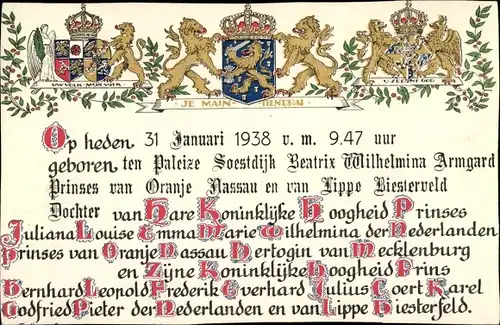 UW VOLK · MIJN VOLK
JE MAINTIENDRAI
Op heden 31 Januari 1938 v.m. 9.47 uur
geboren ten Paleize Soestdijk Beatrix Wilhelmina Armgard
Prinses van Oranje Nassau en van Lippe Biesterveld
Dochter van Hare Koninklijke Hoogheid Prinses
Juliana Louise Emma Marie Wilhelmina der Nederlanden
Prinses van Oranje Nassau Hertogin van Mecklenburg
en Zijne Koninklijke Hoogheid Prins
Bernhard Leopold Frederik Everhard Julius Coert Karel
Godfried Pieter der Nederlanden en van Lippe Biesterfeld.